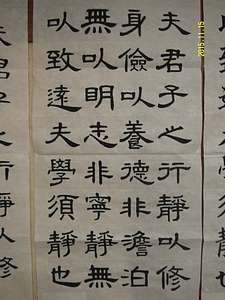 夫君子之行靜以修
身儉以養德非澹泊
無以明志非寧靜無
以致遠夫學須靜也
行靜以修
2015.11.15